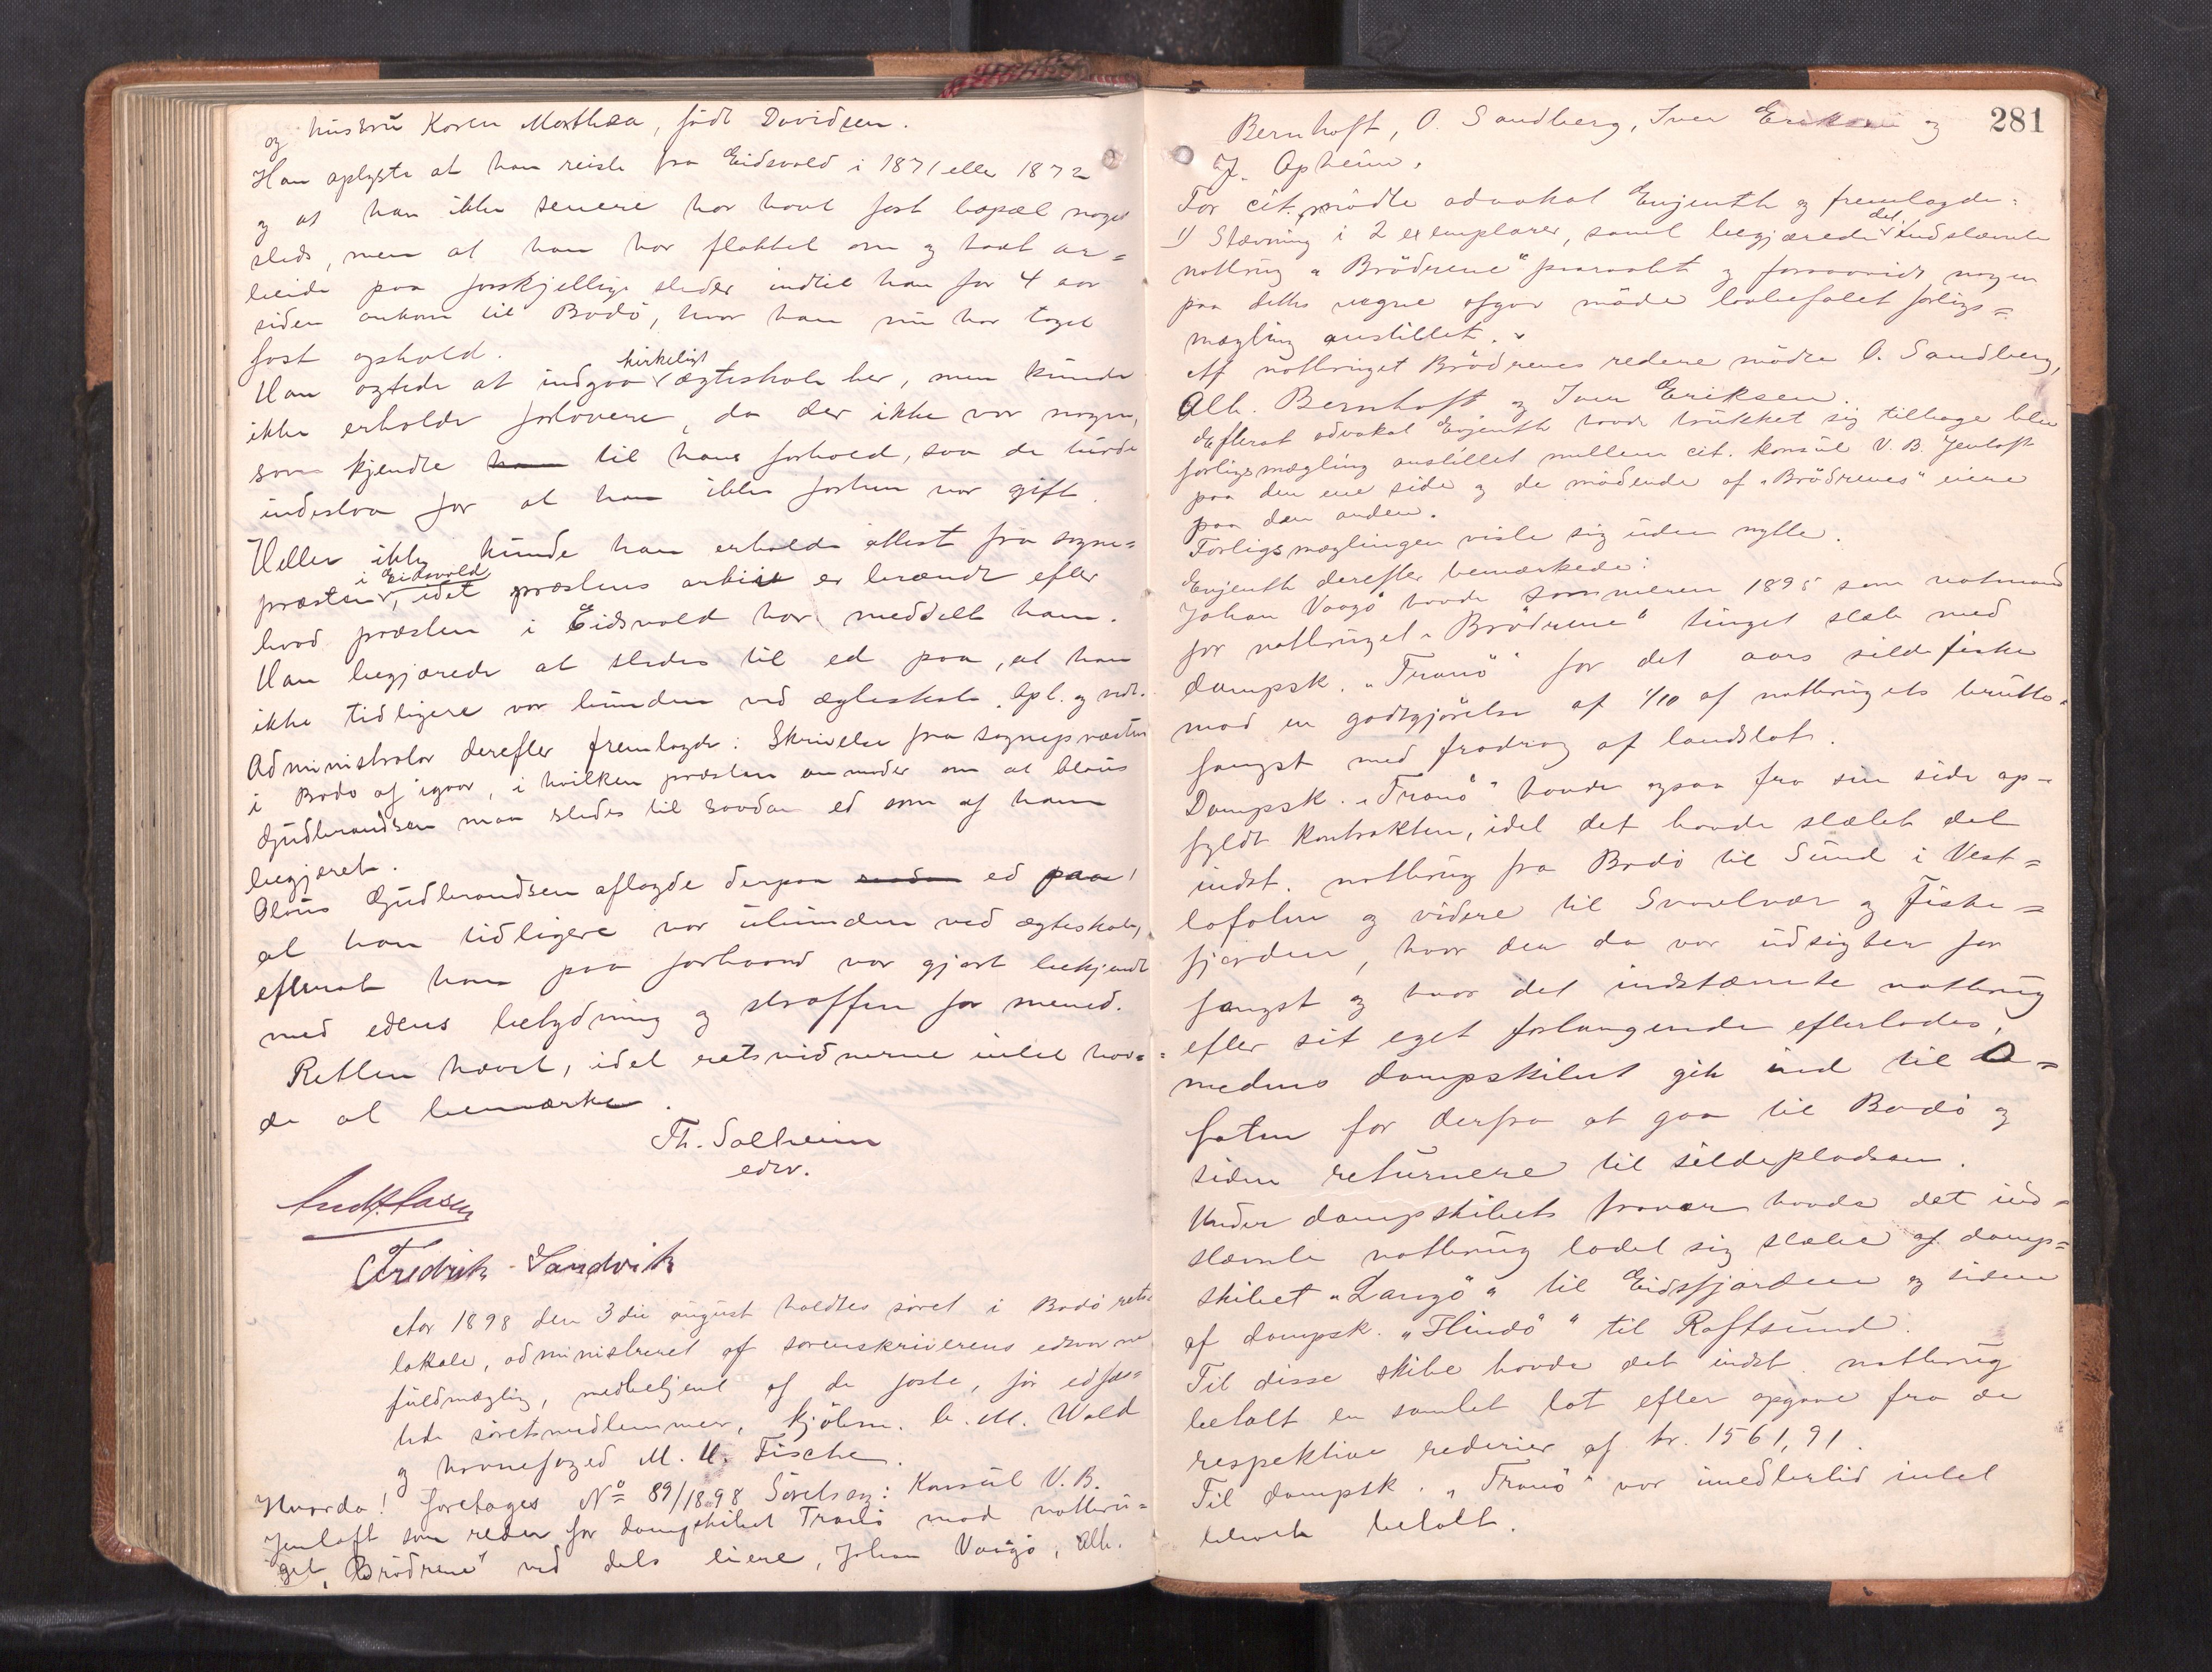 og hustru Karen Mathea, født Davidsen.
Han oplyste at han reiste fra Eidsvold i 1871 eller 1872
og at han ikke senere har havt fast bopæl noget
steds, men at han har flakket om og havt ar=
beide paa forskjellige steder indtil han for 4 aar
siden ankom til Bodö, hvor han nu har taget
fast ophold.
Han agtede at indgaa kirkeligt ægteskab her, men kunde
ikke erholde forlovere, da der ikke var nogen,
som kjendte ham til hans forhold, saa de turde
indestaa for at han ikke forhen var gift.
Heller ikke kunde han erholde attest fra sogne=
præsten i Eidsvold, idet præstens arkiv er brændt efter
hvad præsten i Eidsvold har meddelt ham.
Han begjærede at stedes til ed paa, at han
ikke tidligere var bunden ved ægteskab. Opl. og vedt.
Administrator derefter fremlagde: Skrivelse fra sognepræsten
i Bodö af igaar, i hvilken præsten anmoder om at Olaus
Gudbrandsen maa stedes til saadan ed som af ham
begjæret.
Olaus Gudbrandsen aflagde derpaa saadan ed paa,
at han tidligere var ubunden ved ægteskab,
efterat han paa forhaand var gjort bekjendt
med edens betydning og straffen for mened.
Retten hævet, idet retsvidnerne intet hav=
de at bemærke.
Th. Solheim
edsv.
Fredrik Sandvik
Aar 1898 den 3die august holdtes söret i Bodö rets
lokale, administreret af sorenskriverens edsvorne
fuldmægtig, medbetjent af de faste, för edfæs=
tede söretsmedlemmer, kjöbm. C. M. Wold
og havnefoged M. U. Fische.
Hvorda! foretages No 89/1898 Söretssag: Konsul V. B.
Jentoft som reder for dampskibet Tranö mod notbru=
get "Brödrene" ved dets eiere, Johan Vaagö, Alb.
281
Bernhoft, O. Sandberg, Iver Eriksen og
J. Opheim.
For cit. mödte advokat Evjenth og fremlagde:
1) Stævning i 2 exemplarer, samt begjærede det indstævnte
notbrug "Brödrene" paaraabt og forsaavidt nogen
paa dettes vegne afgav möde lovbefalet forligs=
mægling anstillet.
Af notbruget Brödrenes redere mödte O. Sandberg,
Alb. Bernhoft og Iver Eriksen.
Efterat advokat Evjenth havde trukket sig tilbage blev
forligsmægling anstillet mellem cit. konsul V. B. Jentoft
paa den ene side og de mödende af "Brödrenes" eiere
paa den anden.
Forligsmæglingen viste sig uden nytte.
Evjenth derefter bemærkede:
Johan Vaagö havde sommeren 1895 som notmand
for notbruget "Brödrene" tinget slæb med
dampsk. "Tranö" for det aars sildefiske
mod en godtgjörelse af 1/10 af notbrugets brutto=
fangst med fradrag af landslot.
Dampsk. "Tranö" havde ogsaa fra sin side op=
fyldt kontrakten, idet det havde slæbt det
indst. notbrug fra Bodö til Sund i Vest=
lofoten og videre til Svolvær og Fiske=
fjorden, hvor der da var udsigter for
fangst og hvor det indstævnte notbrug
efter sit eget forlangende efterlodes,
medens dampskibet gik ind til O=
foten for derfra at gaa til Bodö og
siden returnere til sildepladsen.
Under dampskibets fravær havde det ind=
stævnte notbrug ladet sig slæbe af damp=
skibet "Langö" til Eidsfjorden og siden
af dampsk. "Hindö" til Raftsund.
Til disse skibe havde det indst. notbrug
betalt en samlet lot efter opgave fra de
respektive rederier af kr. 1561,91.
Til dampsk. "Tranö" var imedlertid intet
blevet betalt.